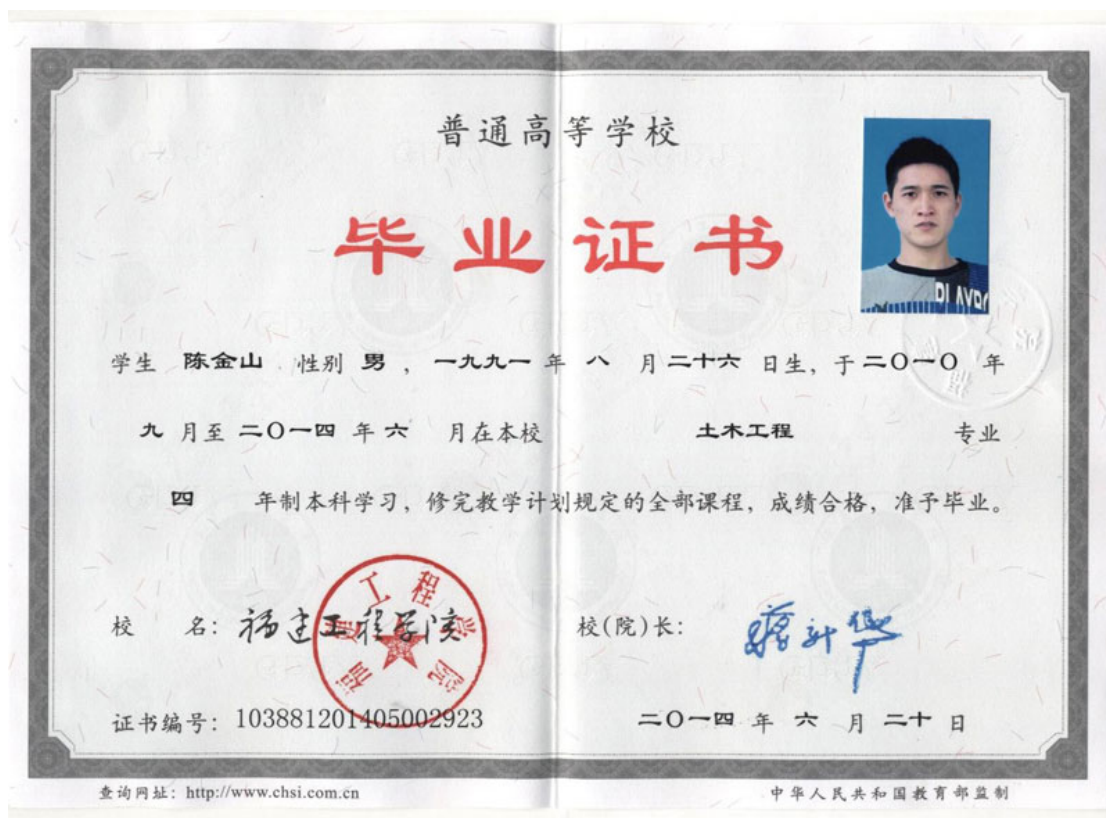 普通高等学校
毕业证书
学生 陈金山 性别 男 ， 一九九一 年 八 月 二十六 日生，于 二〇一〇 年
九 月至 二〇一四 年 六 月在本校 土木工程 专业
四 年制本科学习，修完教学计划规定的全部课程，成绩合格，准予毕业。
校 名：福建工程学院
福建工程学院
校(院)长：
证书编号：103881201405002923
二〇一四 年 六 月 二十 日
查询网址：http://www.chsi.com.cn
中华人民共和国教育部监制